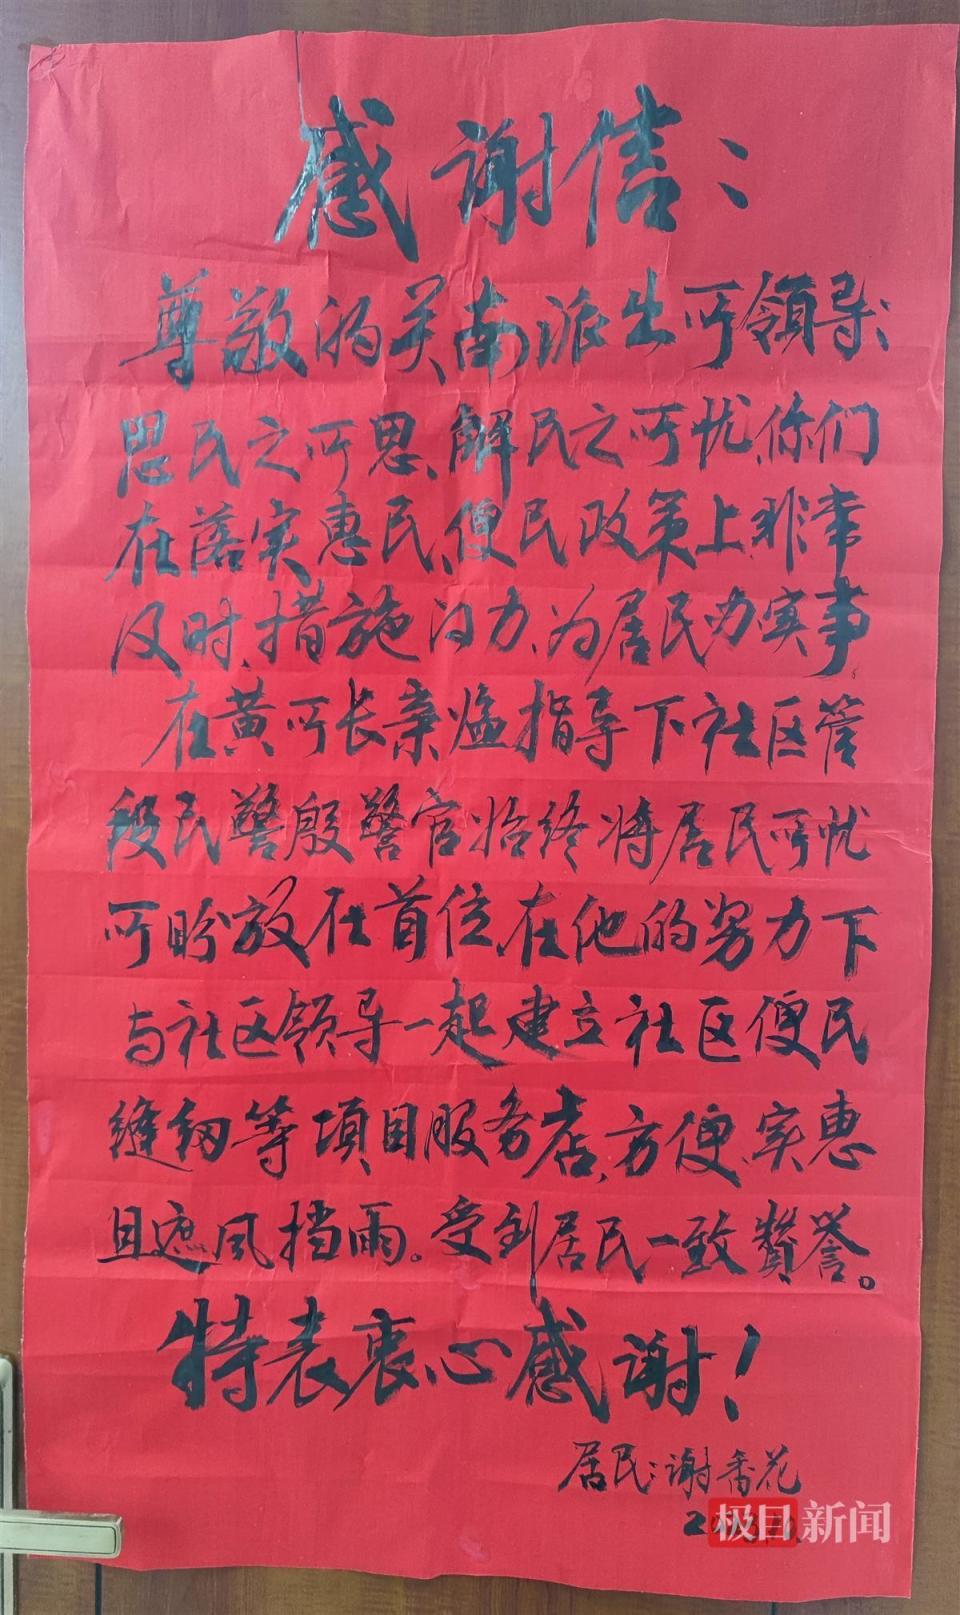 感谢信：
尊敬的关南派出所领导：
思民之所思、解民之所忧、你们
在落实惠民、便民政策上、非常
及时、措施得力、为居民办实事。
在黄所长亲临指导下社区管
段民警殷警官始终将居民所忧
所盼放在首位、在他的努力下
与社区领导一起建立社区便民
缝纫等項目服务店、方便、实惠
且遮风挡雨。受到居民一致赞誉。
特表衷心感谢！
居民：谢香花
极目新闻